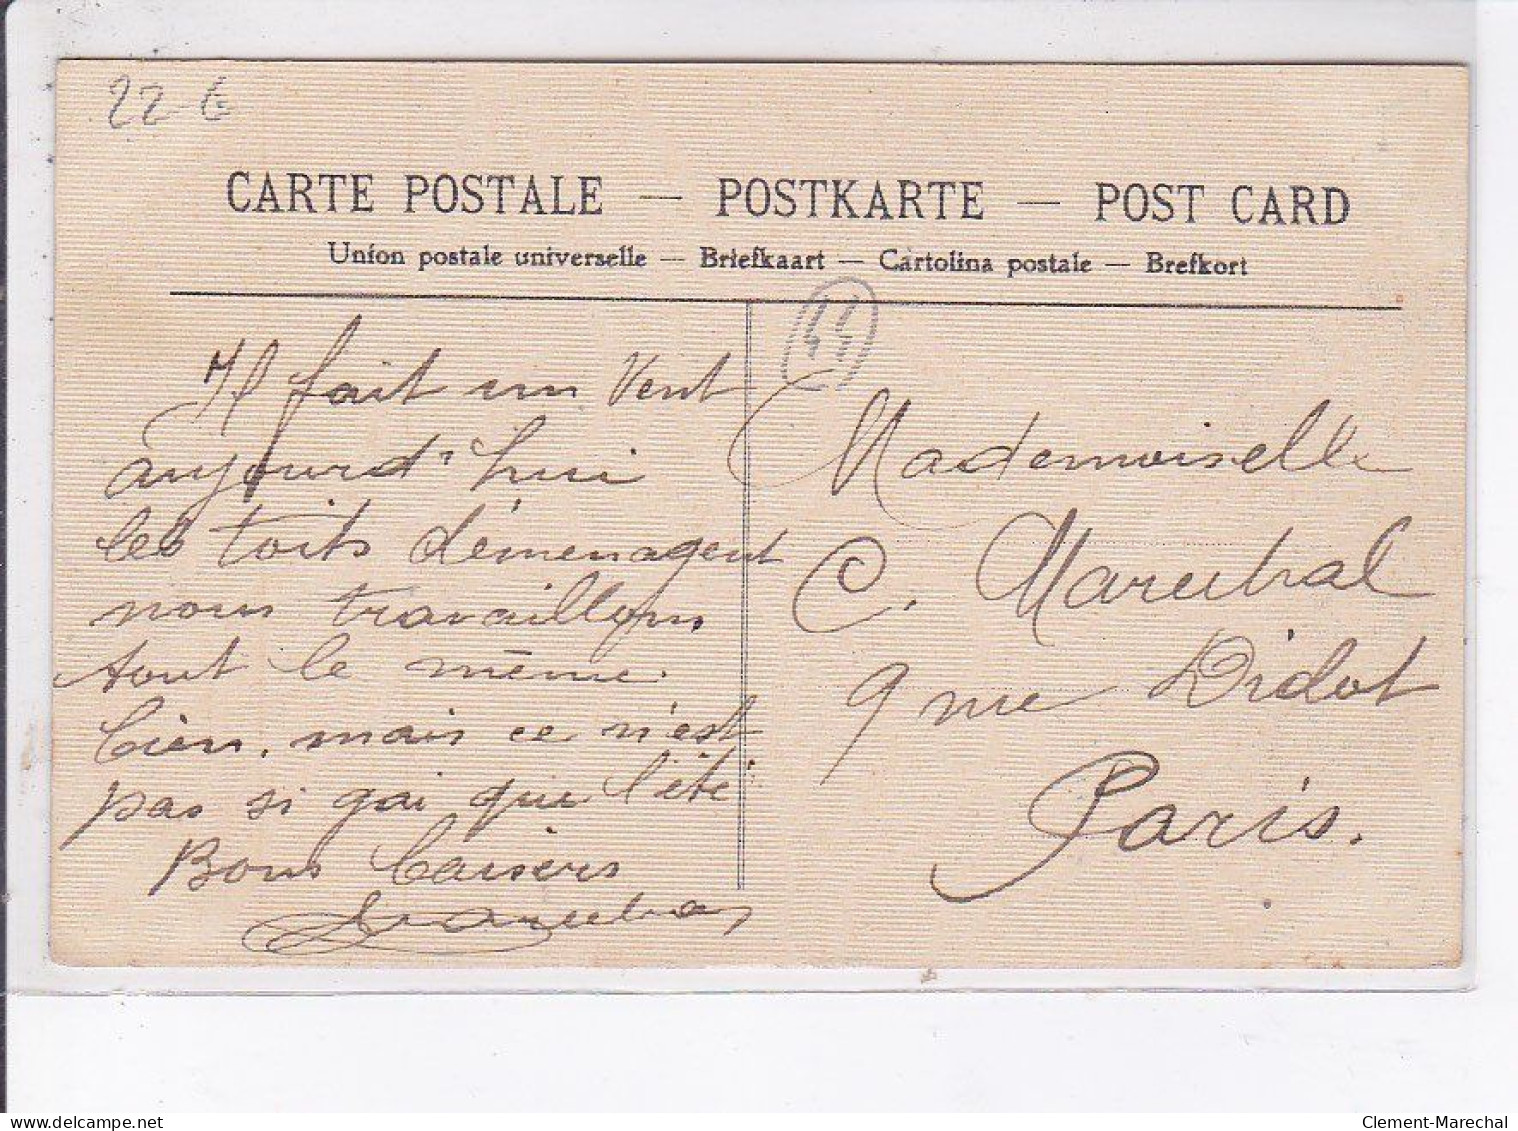 22 €
CARTE POSTALE — POSTKARTE — POST CARD
Union postale universelle — Briefkaart — Cartolina postale — Brefkort
Il fait un Vent
aujourd'hui
les toits déménagent
nous travaillons
tout le même
bien, mais ce n'est
pas si gai que l'été
Bons baisers
Marechal
Mademoiselle
C. Marechal
9 rue Didot
Paris.
delcampe.net
Clement-Marechal